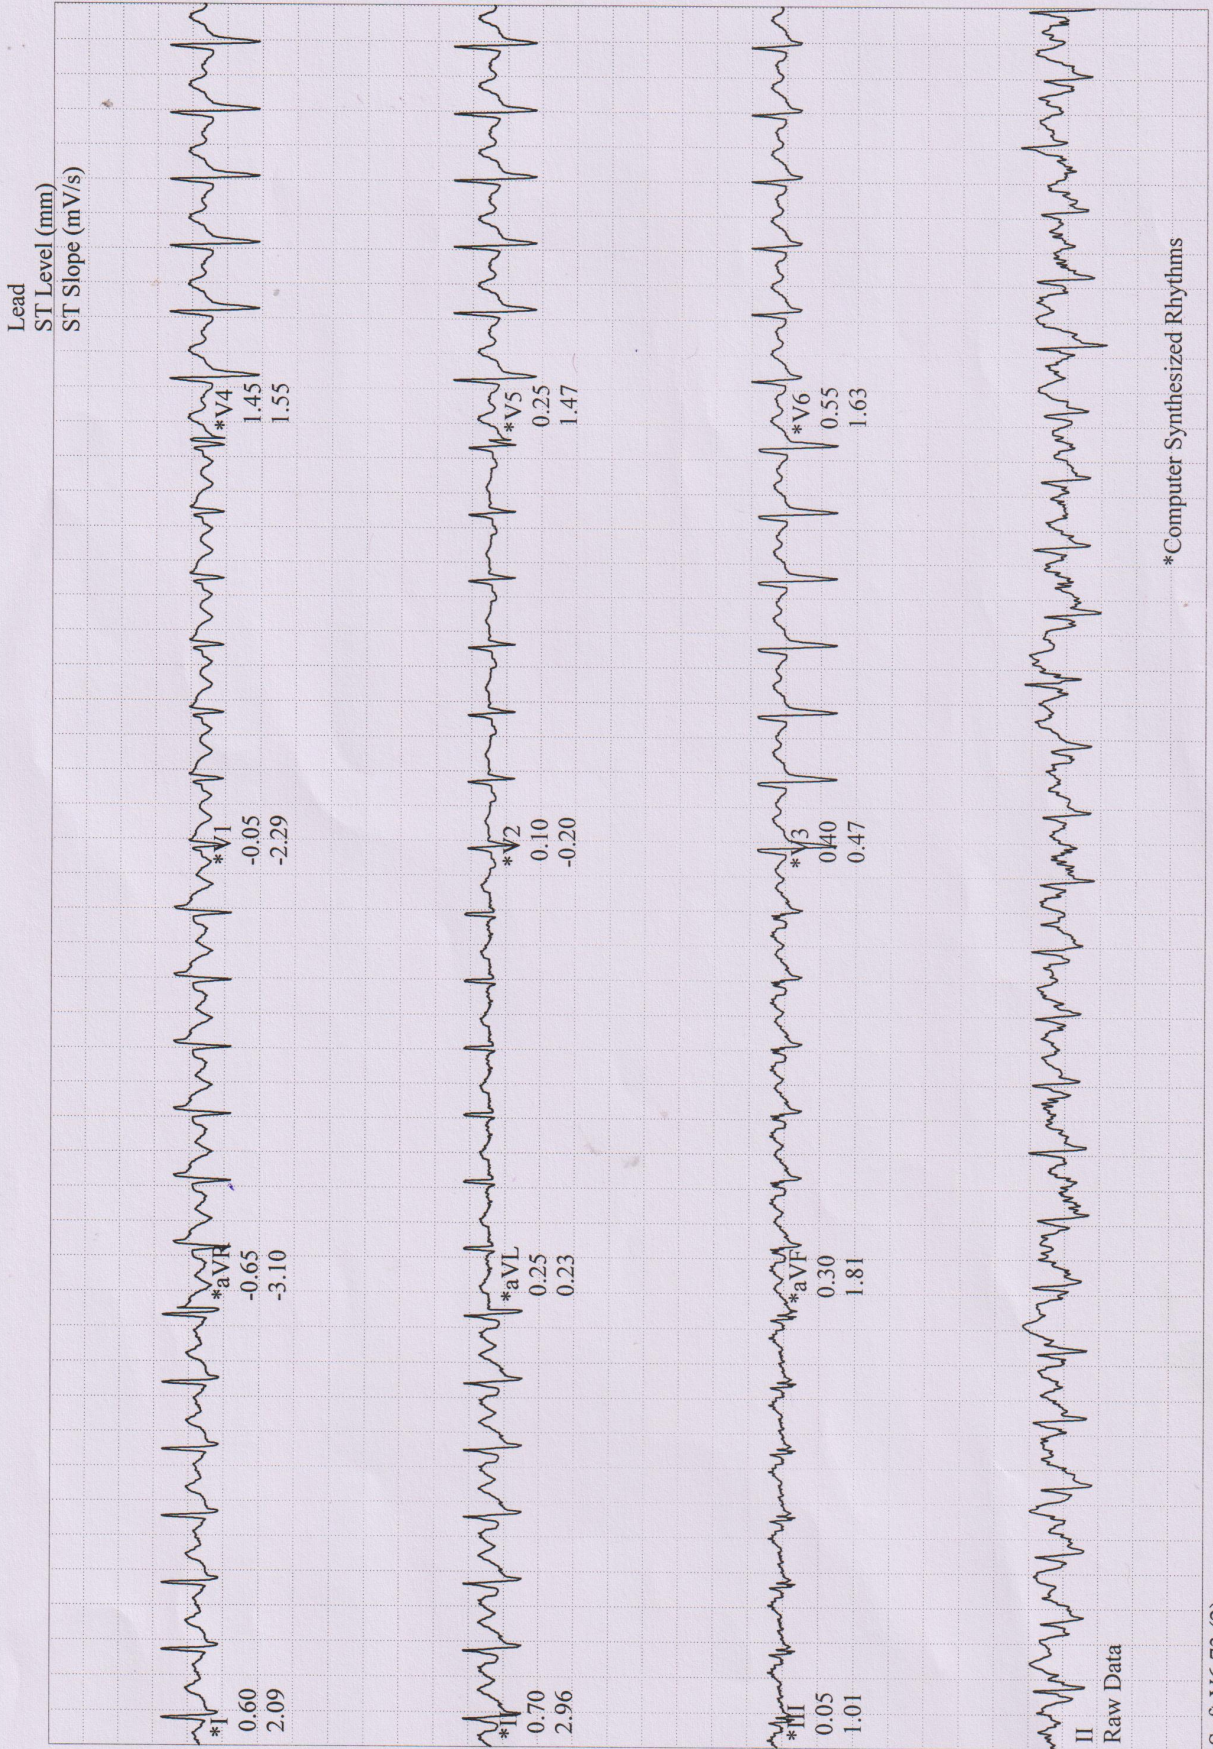 Lead
ST Level (mm)
ST Slope (mV/s)
*I
0.60
2.09
*aVR
-0.65
-3.10
*V1
-0.05
-2.29
*V4
1.45
1.55
*II
0.70
2.96
*aVL
0.25
0.23
*V2
0.10
-0.20
*V5
0.25
1.47
*III
0.05
1.01
*aVF
0.30
1.81
*V3
0.40
0.47
*V6
0.55
1.63
II
Raw Data
*Computer Synthesized Rhythms